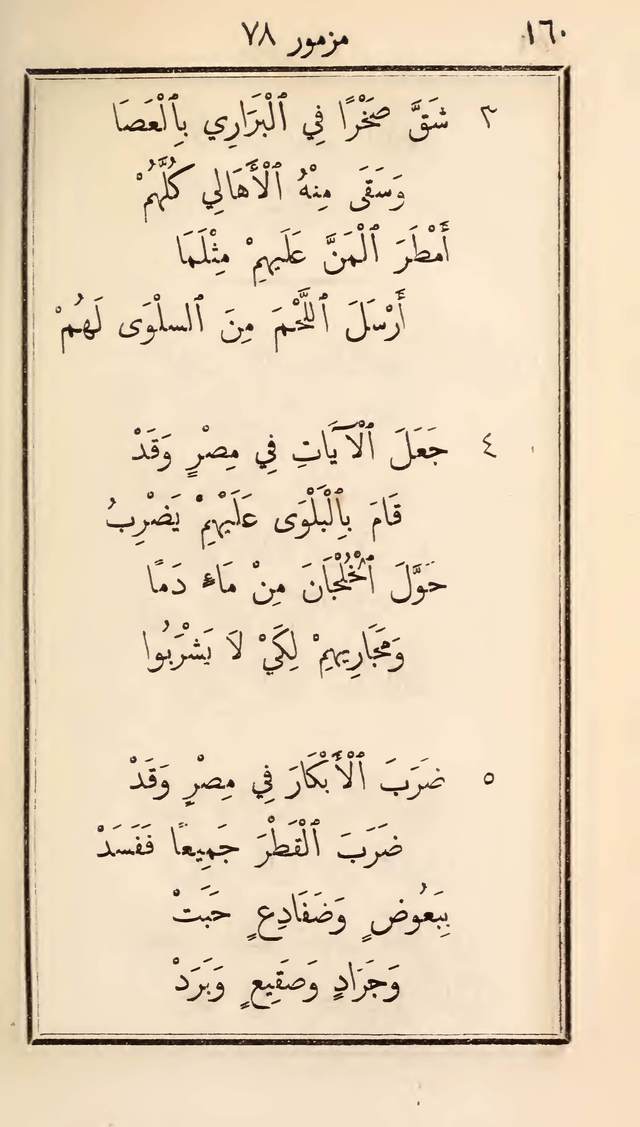 ١٦٠ مزمور ٧٨
٣ شَقَّ صَخْرًا فِي ٱلْبَرَارِي بِٱلْعَصَا
وَسَقَى مِنْهُ ٱلْأَهَالِي كُلَّهُمْ
أَمْطَرَ ٱلْمَنَّ عَلَيهِمْ مِثْلَمَا
أَرْسَلَ ٱللَّحْمَ مِنَ ٱلسلْوَى لَهُمْ
٤ جَعَلَ ٱلْآيَاتِ فِي مِصْرٍ وَقَدْ
قَامَ بِٱلْبَلْوَى عَلَيْهِمْ يَضْرِبُ
حَوَّلَ ٱلْخُلْجَانَ مِنْ مَاءٍ دَمًا
وَمَجَارِيهِمْ لِكَيْ لَا يَشْرَبُوا
٥ ضَرَبَ ٱلْأَبْكَارَ فِي مِصْرٍ وَقَدْ
ضَرَبَ ٱلْقَطْرَ جَمِيعًا فَفَسَدْ
بِبَعُوضٍ وَضَفَادِعٍ حَبَتْ
وَجَرَادٍ وَصَقِيعٍ وَبَرَدْ